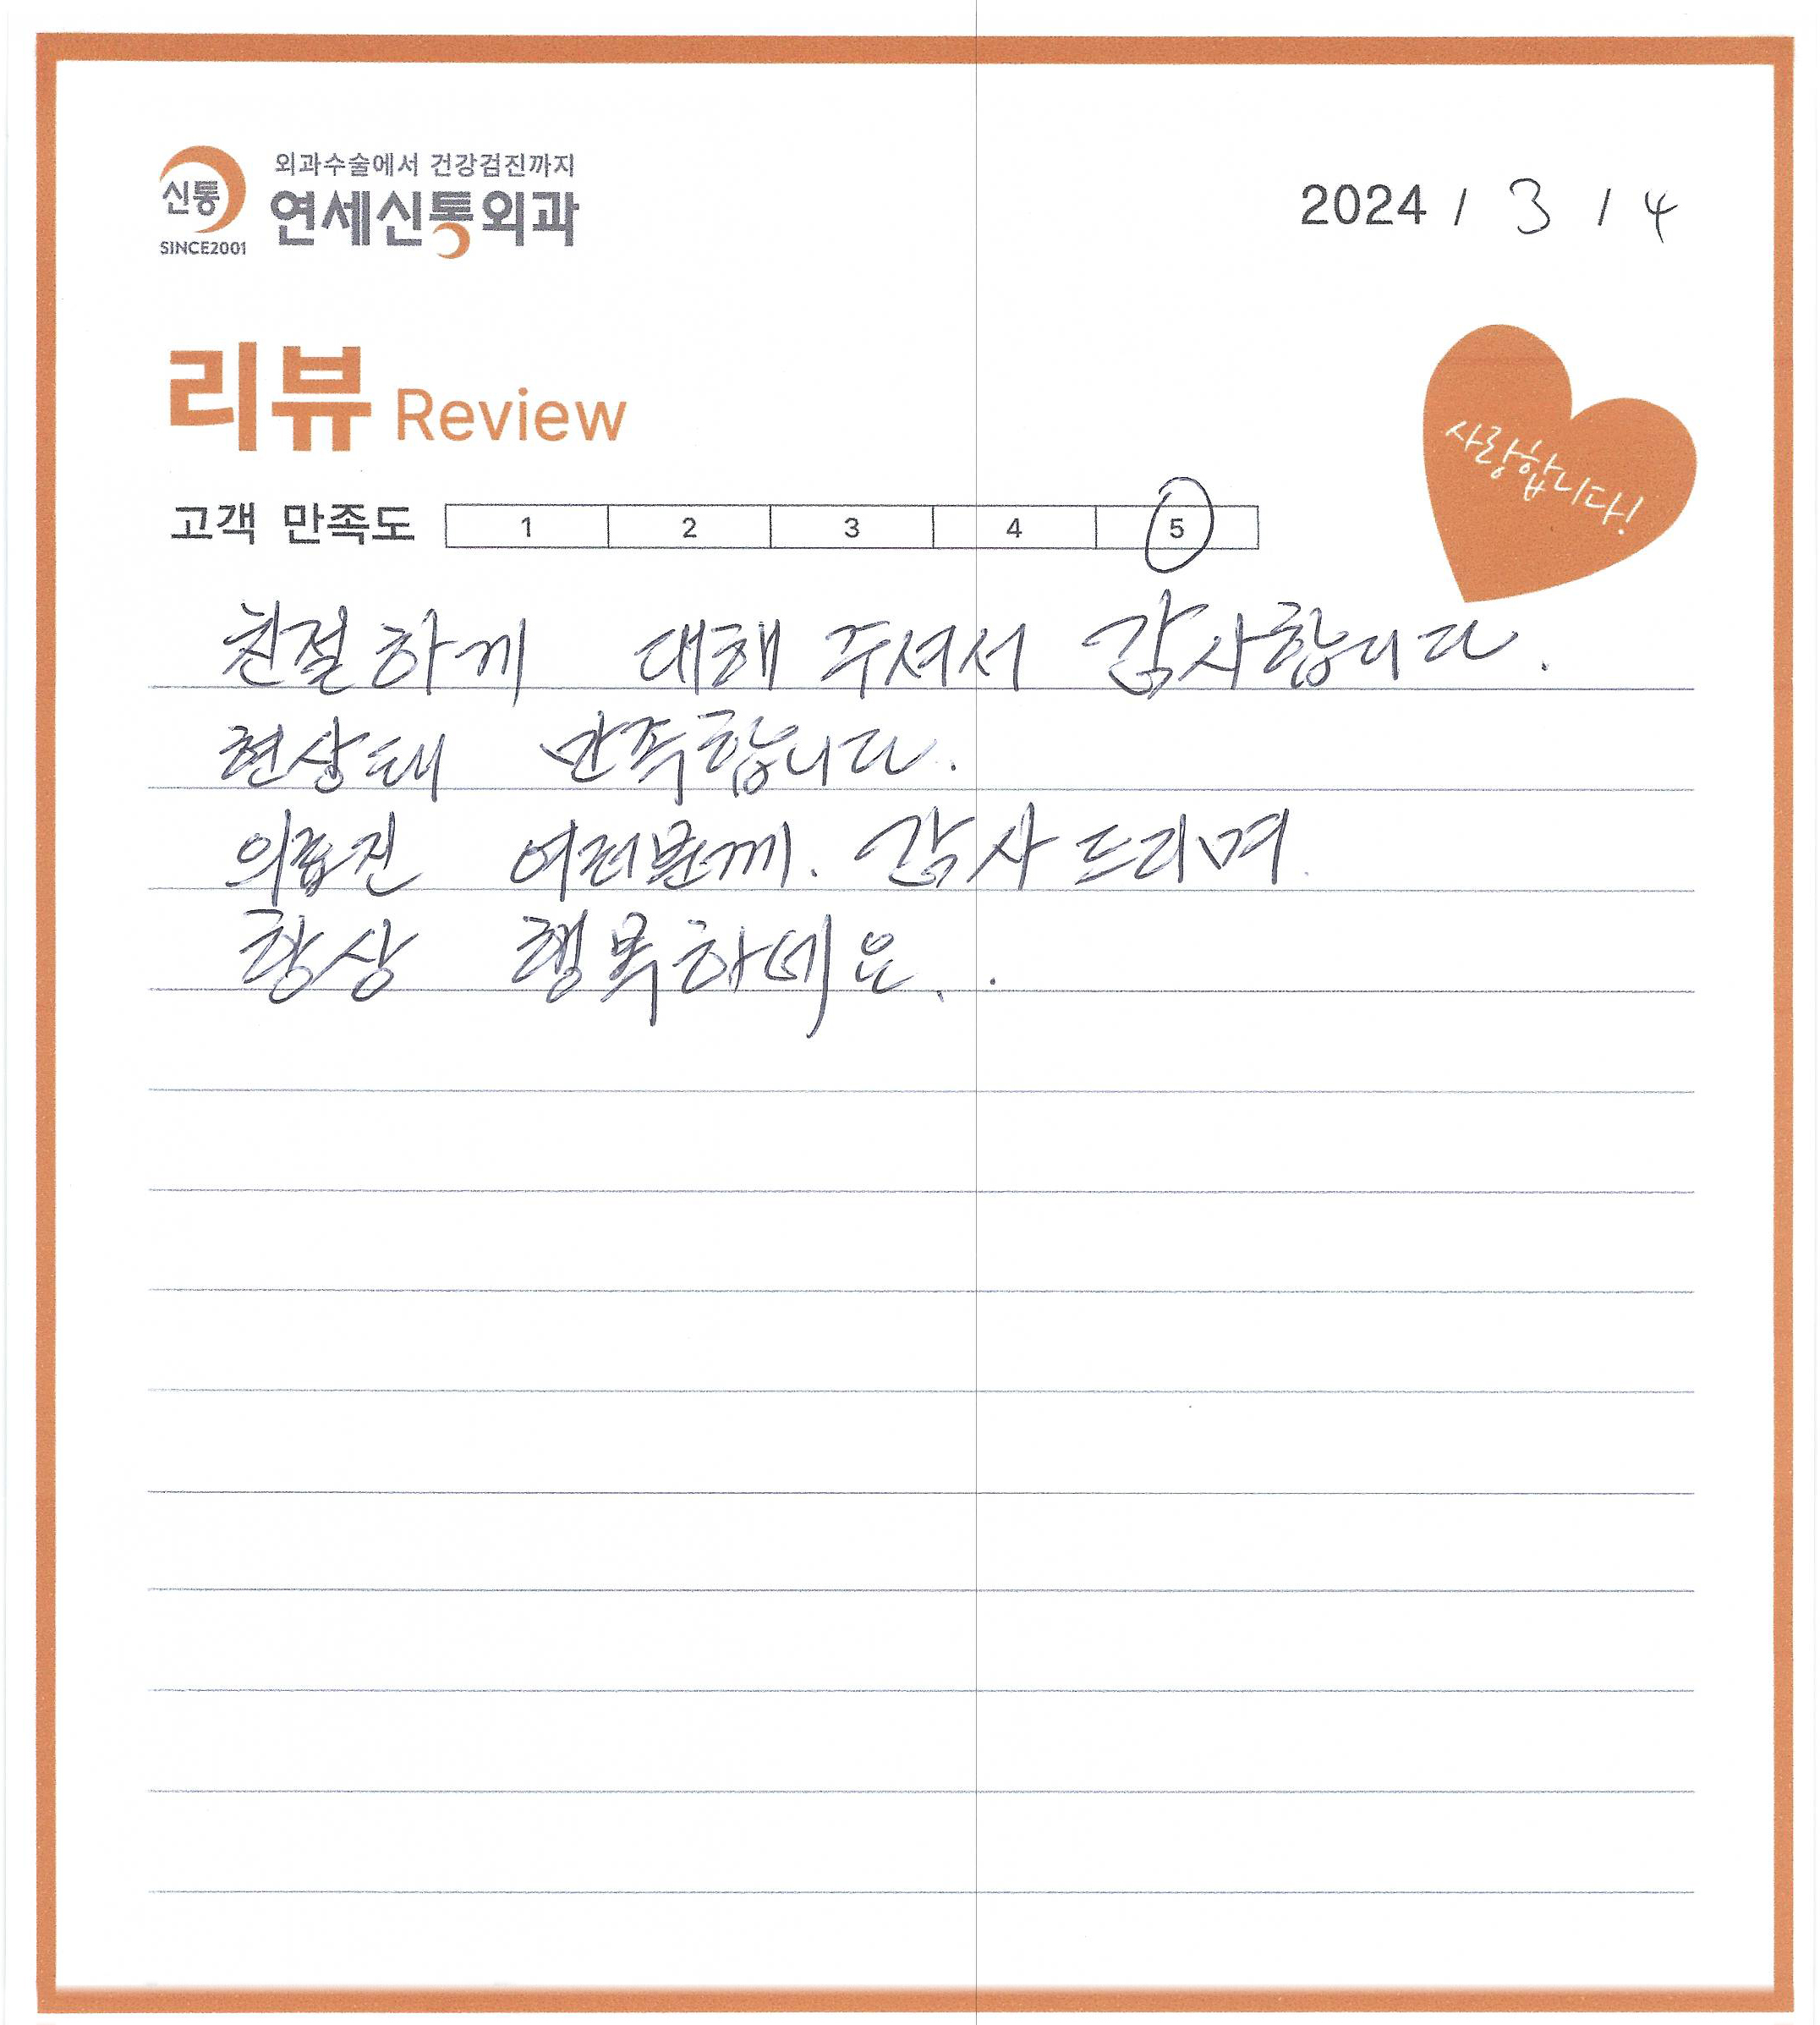 신통
SINCE2001
외과수술에서 건강검진까지
연세신통외과
2024 / 3 / 4
리뷰 Review
사랑합니다!
고객 만족도 1 2 3 4 5
친절하게 대해 주셔서 감사합니다.
현상태 만족합니다.
의료진 여러분께. 감사드리며
항상 행복하세요..